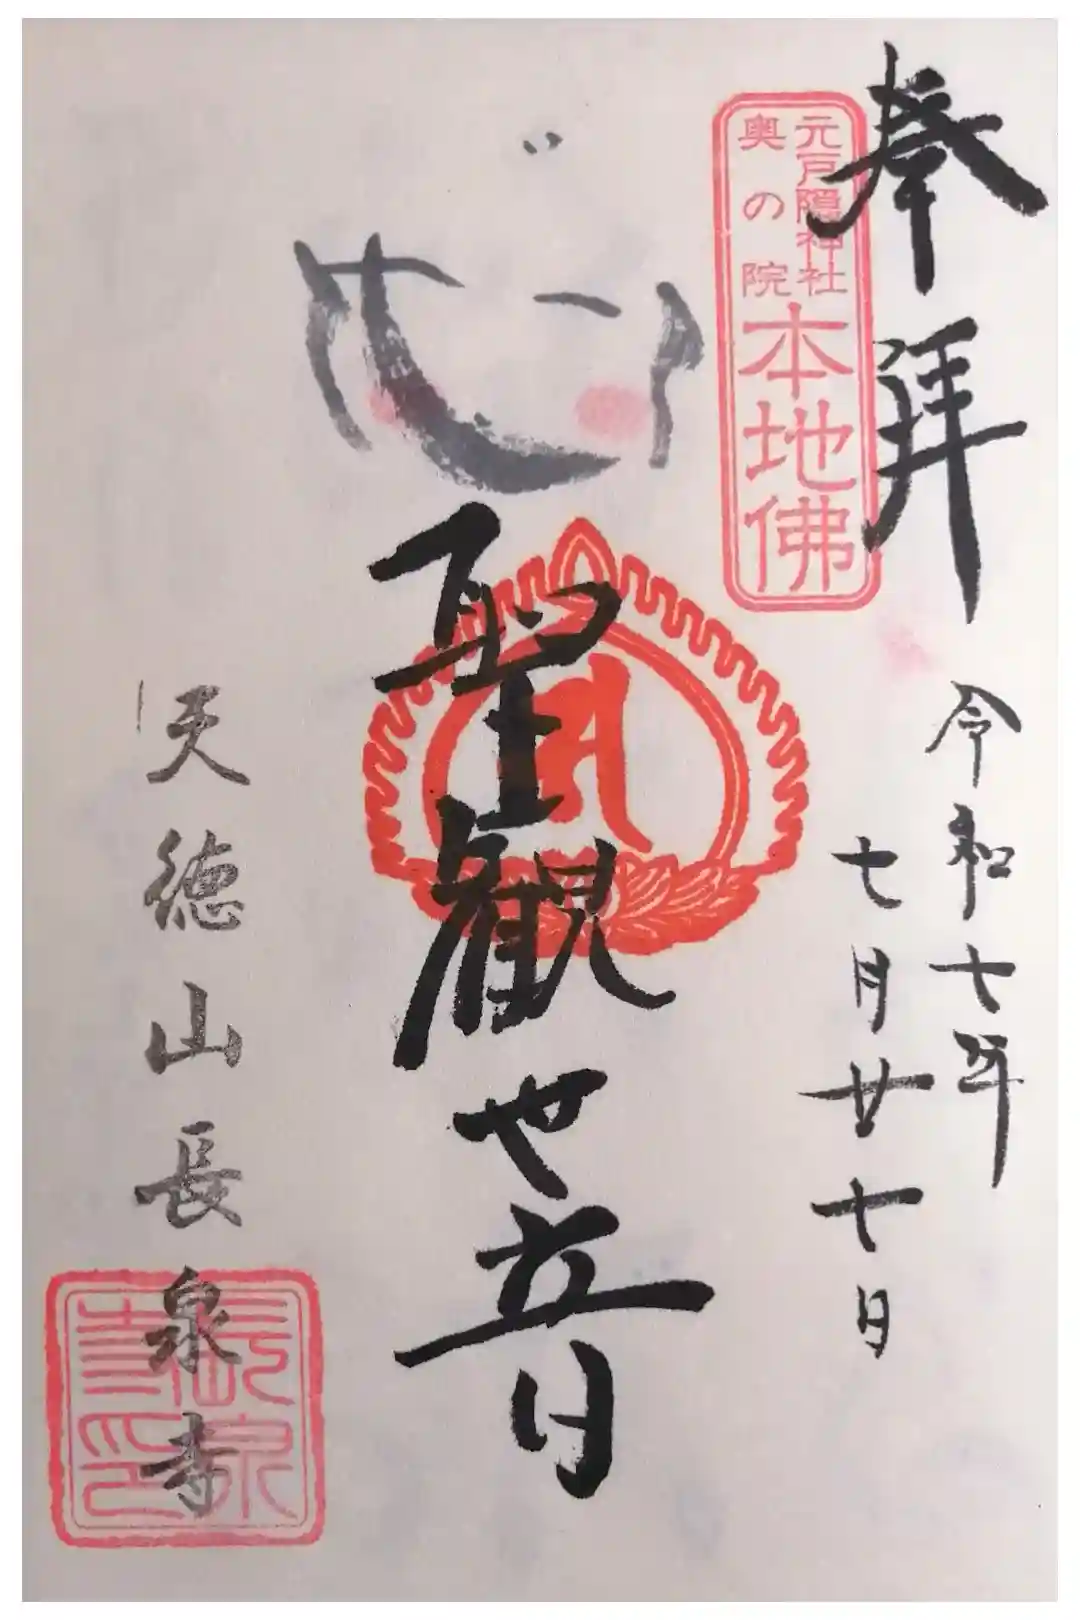 奉拝
元戸隠神社
奥の院
本地佛
令和七年
七月廿十日
聖観世音
天徳山長泉寺
長泉
寺印